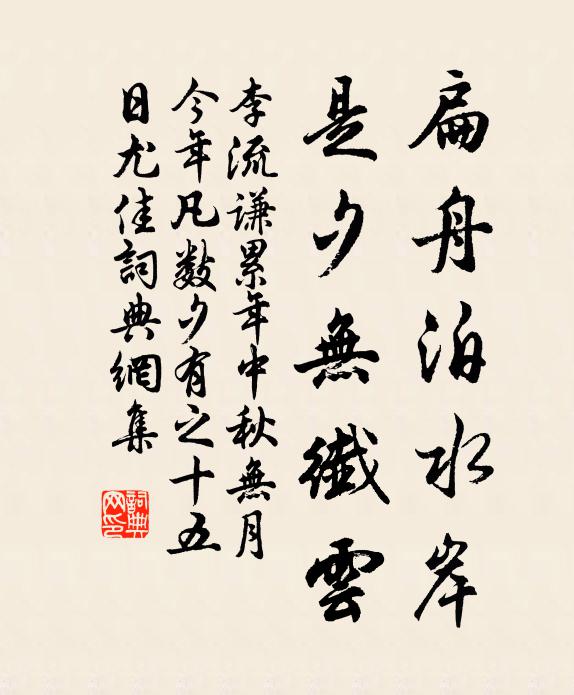 扁舟泊水岸
是夕無纖雲
李流謙累年中秋無月
今年凡數夕有之十五
日尤佳詞典網集
詞典
网印